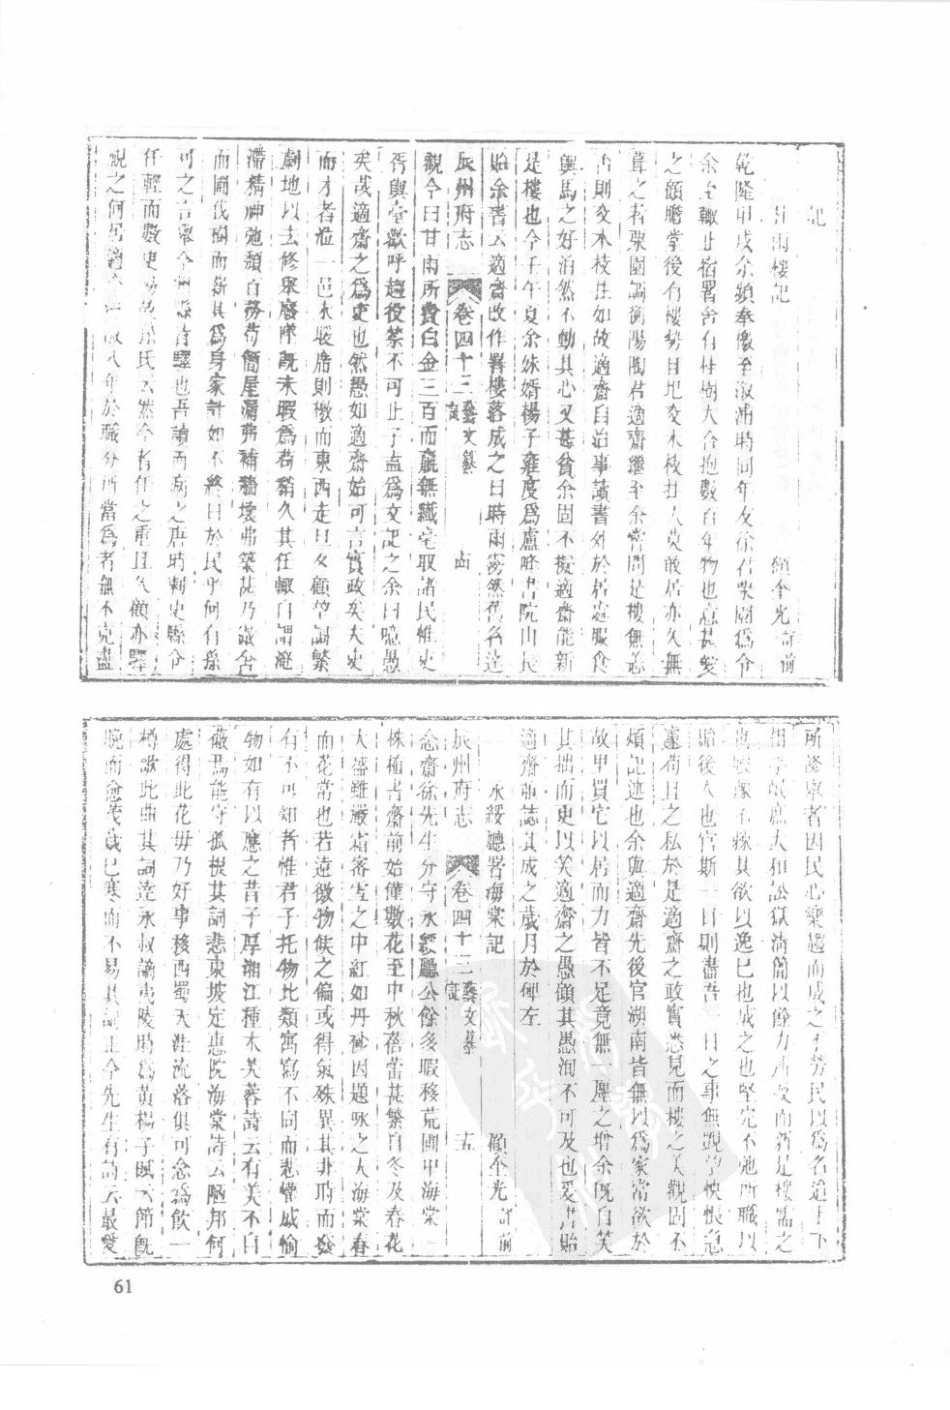 記
樓記　顧奎光　詳前
乾隆甲戌余頻奉檄至溆浦時同年友徐君栗園爲令
余至輒止宿署舍有桂樹大合抱數百年物也意甚愛
之顧瞻堂後有樓勢且圮交木枝拄人莫敢居亦久無
葺之者栗園調衡陽陶君適齋繼至余嘗問是樓無恙
否則交木枝拄如故適齋自治事讀書外於居處服食
輿馬之好泊然不動其心又甚貧余固不擬適齋能新
是樓也今壬午夏余妹婿楊子雍度爲盧峰書院山長
貽余書云適齋改作署樓落成之日時雨霶然舊名達
辰州府志　卷四十三　藝文纂　記　古
觀今曰甘雨所費白金三百而嬴無纖毫取諸民惟史
胥輿臺歡呼趨役禁不可止子盍爲文記之余曰噫愚
矣哉適齋之爲吏也然愚如適齋始可言實政矣夫史
而才者涖一邑未暖席則檄而東西走旦夕顧苟調繁
劇地以去修舉廢墜既未暇爲苟稍久其任輒自謂淹
滯精神弛頹百務苟簡屋漏弗補牆壞弗築甚乃毀舍
而圃伐樹而薪其爲身家計如不終日於民乎何有孫
可之言舉今州縣皆驛也吾讀而病之唐時刺史縣令
任輕而數更易故孫氏云然今者任之重且久顧亦驛
視之何居適八年於職分所當爲者無不克盡
所隆東者因民心樂趨而成之不勞民以爲名造士下
庶大和訟獄清簡以餘力及而新是樓需之
也其欲以逸已也成之也堅完不弛所職以
貽後人也官斯一日則盡吾一日之事無覬望怏悵急
遽苟且之私於是適齋之政實悉見而樓之美觀固不
煩記述也余與適齋先後官湖南皆無以爲家常欲於
故里買宅以居而力皆不足竟無一廛之增余既自笑
其拙而更以笑適齋之愚顧其愚洵不可及也爰書貽
適齋誌其成之歲月於碑左
永綏聽署海棠記　顧奎光　詳前
辰州府志　卷四十三　藝文纂　記　五
念齋徐先生分守永綏聽公餘多暇移荒圃中海棠一
株植書齋前始僅數花至中秋蓓蕾甚繁自冬及春花
大盛雖嚴霜密雪之中紅如丹砂因題咏之夫海棠春
而花常也若遠徼物候之偏或得氣殊異其非時而發
有不可知者惟君子托物比類寓寫不同而悲懽戚愉
物如有以應之昔子厚湘江種木芙蓉詩云有美不自
蔽焉能守孤根其詞悲東坡定惠院海棠詩云陋邦何
處得此花毋乃好事移西蜀天涯流落俱可念爲飲一
樽歌此曲其詞達永叔謫夷陵時爲黃楊子賦云節既
晚而愈茂歲已寒而不易其詞正今先生有詩云最愛
61